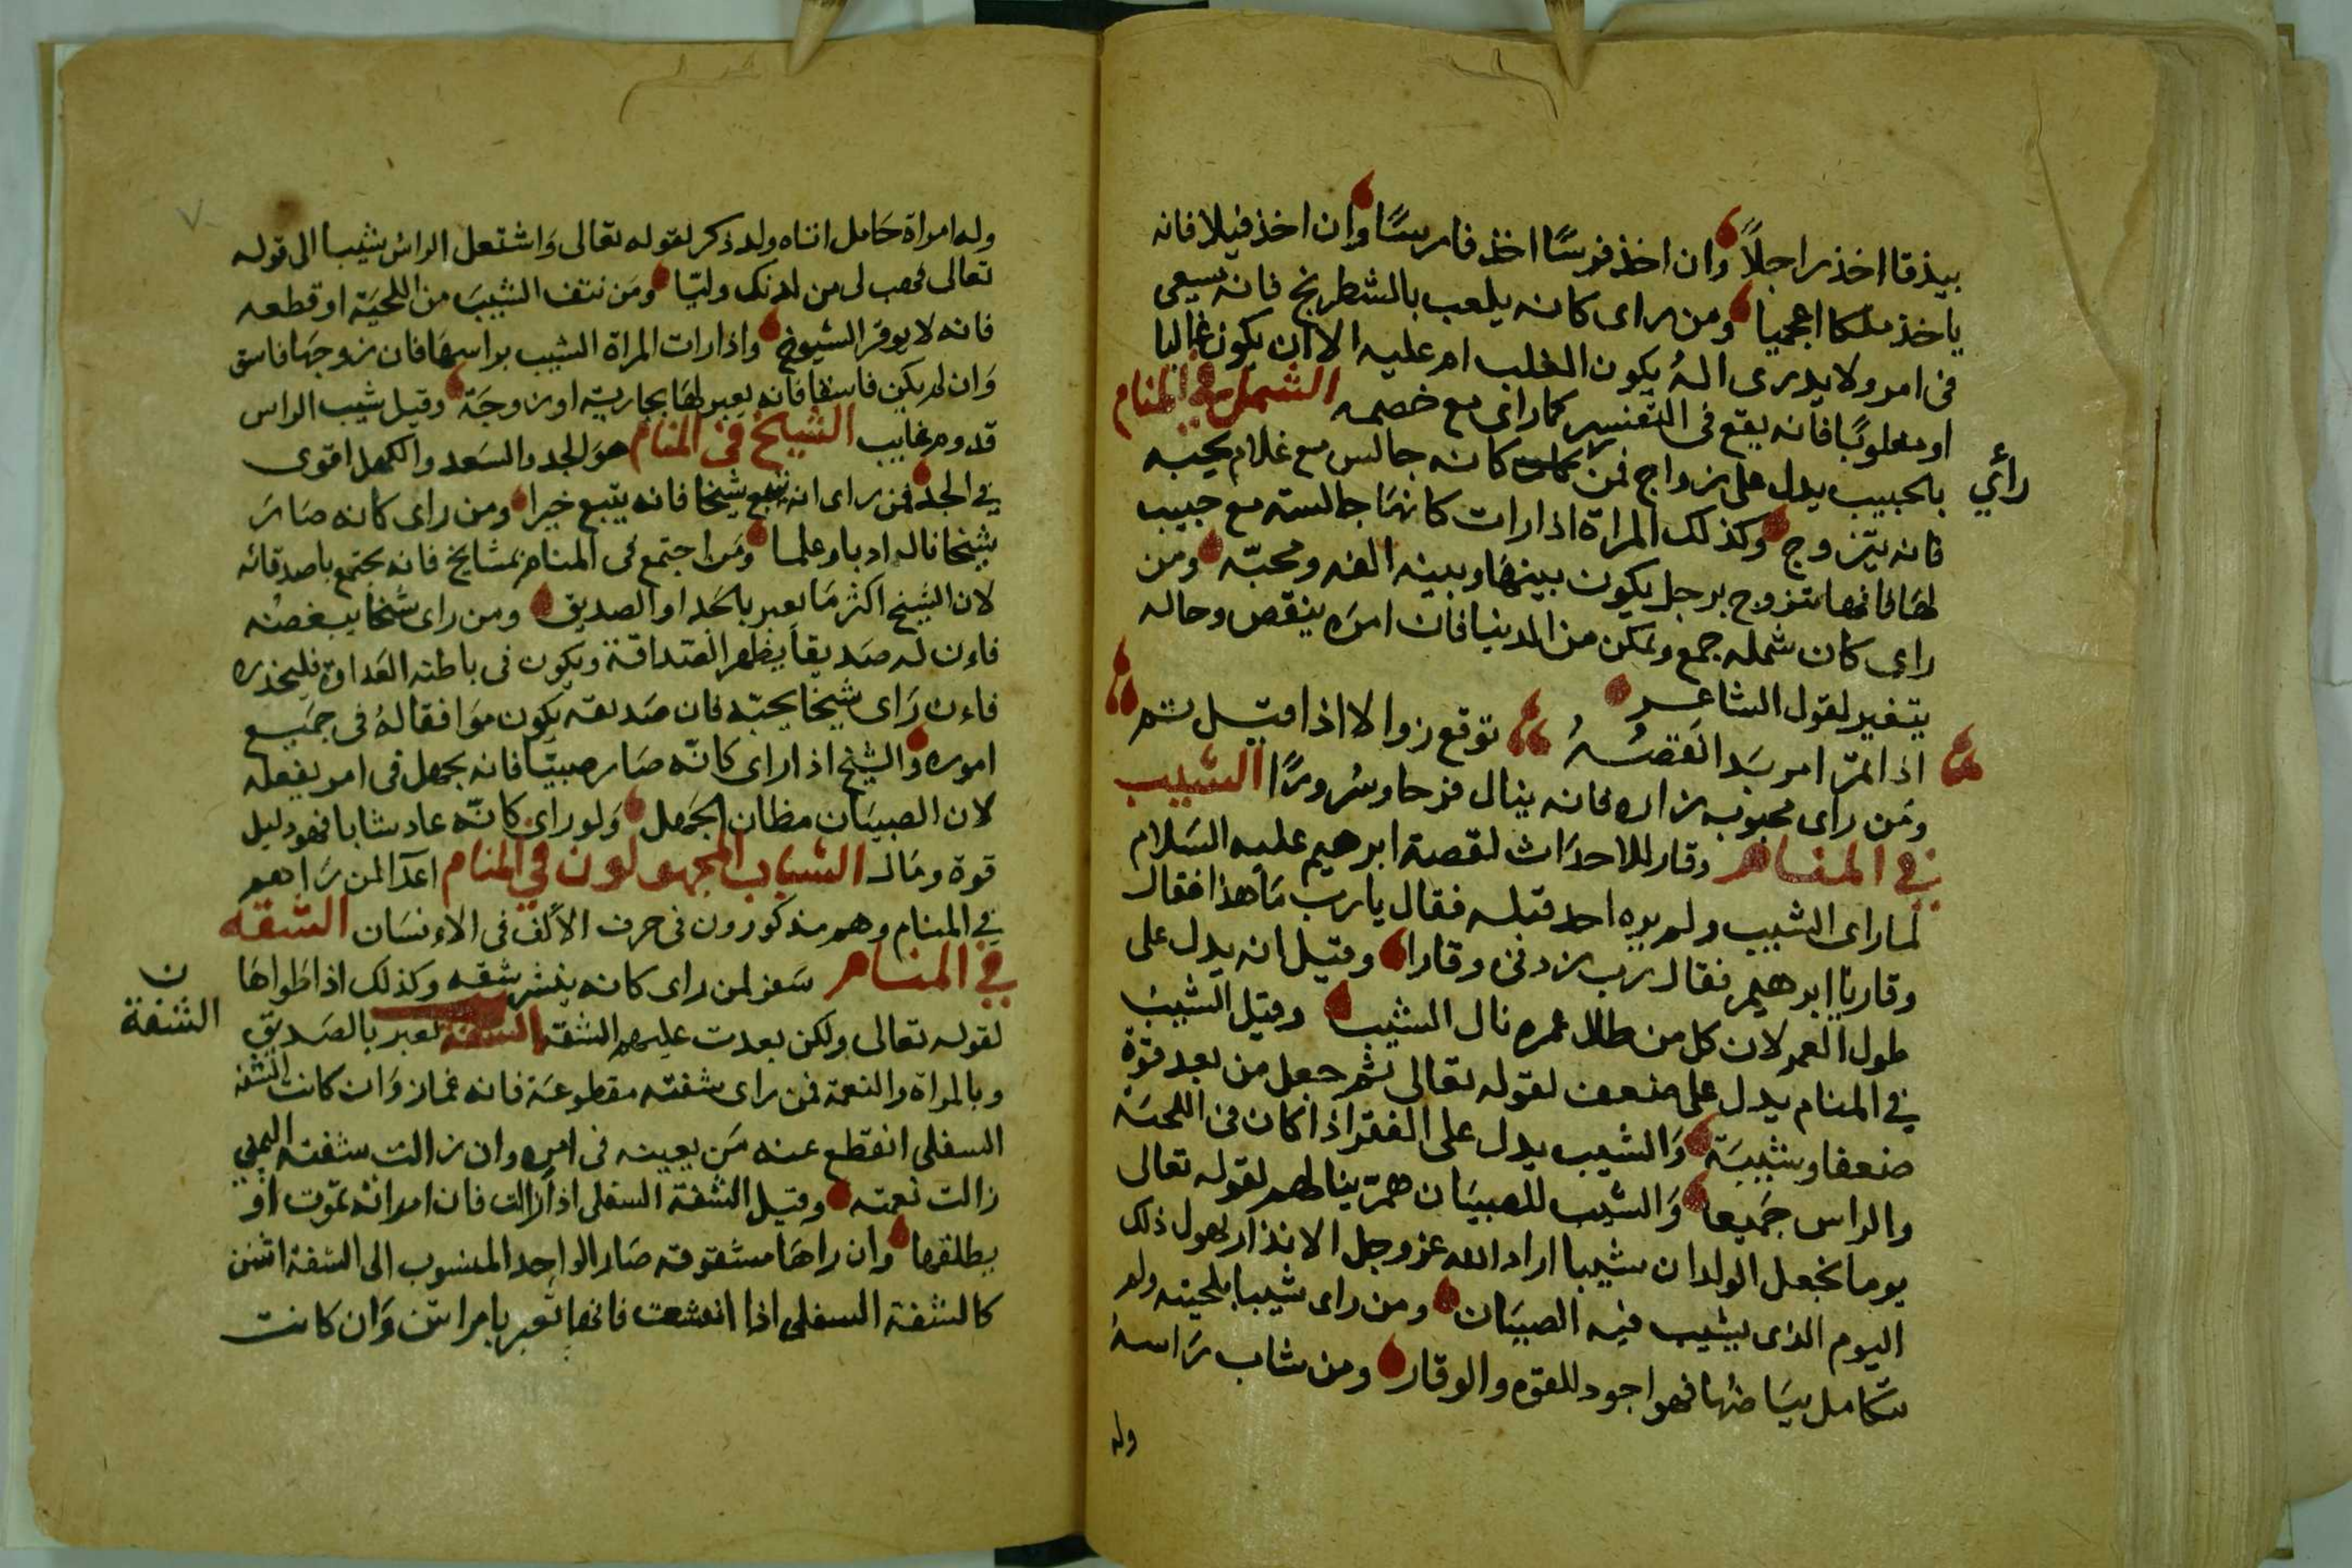 بيذقا اخذ راجلاً وان اخذ فرسًا اخذ فارسًا وان اخذ فيلا فانه
ياخذ ملكا اعجميا ومن راى كانه يلعب بالشطرنج فانه يسعى
فى امر ولا يدرى اله يكون الغلب ام عليه الا ان يكون غالبا
او مغلوبًا فانه يقع فى التفسير كما راى مع خصمه الشمل فى المنام
بالحبيب يدل على زواج فمن كانه جالس مع غلام يحبه
رأي
فانه يتزوج وكذلك المراة اذا رات كانها جالسته مع حبيب
لها فانها تتزوج برجل يكون بينها وبينه الفه ومحبّه ومن
راى كان شمله جمع وتمكن من الدنيا فان امره ينقص وحاله
يتغير لقول الشاعر
اذا تم امر بدا نقصه توقع زوالا اذا قيل تم
ومن راى محبوبه زاره فانه ينال فرحا وسرورًا الشيب
فى المنام وقار للاحداث لقصة ابرهيم عليه السلام
لما راى الشيب ولم يره احد قبله فقال يارب ما هذا فقال
وقار يا ابرهيم فقال رب زدنى وقارا وقيل انه يدل على
طول العمر لان كل من طال عمره نال الشيب وقيل الشيب
فى المنام يدل على ضعف لقوله تعالى ثم جعل من بعد قوة
ضعفا وشيبة والشيب يدل على الفقر اذا كان فى اللحية
والراس جميعا والشيب للصبيان همّ ينالهم لقوله تعالى
يوما يجعل الولدان شيبا اراد الله عز وجل الانذار بهول ذلك
اليوم الذى يشيب فيه الصبيان ومن راى شيبا بلحيته ولم
يتكامل بياضها فهو اجود للقوه والوقار ومن شاب راسه
وله
وله امراة حامل اتاه ولد ذكر لقوله تعالى واشتعل الراس شيبا الى قوله
تعالى فهب لى من لدنك وليّا ومن نتف الشيب من اللحية او قطعه
فانه لا يوقر الشيوخ واذا رات المراة الشيب براسها فان زوجها فاسق
وان لم يكن فاسقا فانه يعبر لها بجارية او زوجة وقيل شيب الراس
قدوم غايب الشيخ فى المنام هو الجد والسعد والكهل اقوى
فى الجد فمن راى انه يتبع شيخا فانه يتبع خيرا ومن راى كانه صار
شيخا نال ادبا وعلما ومن اجتمع فى المنام بمشايخ فانه يجتمع باصدقائه
لان الشيخ اكثر ما يعبر بالجد او الصديق ومن راى شخا يبغضنه
فاءن له صديقاً يظهر الصداقة ويكون فى باطنه العداوة فليحذره
فاءن راى شيخا يحبّه فان صديقه يكون موافقا له فى جميع
اموره والشيخ اذا راى كانه صار صبيّا فانه يجهل فى امر يفعله
لان الصبيان مظان الجهل ولو راى كانّه عاد شابا فهو دليل
قوة ومال الشباب المجهولون فى المنام اعدا لمن راهم
فى المنام وهم مذكورون فى حرف الألف فى الاءنسان الشقه
فى المنام سفر لمن راى كانه ينشر شقه وكذلك اذا طواها
لقوله تعالى ولكن بعدت عليهم الشقه الشفه تعبر بالصديق
ن
الشفة
وبالمراة والنعمة فمن راى شفته مقطوعة فانه غماز وان كانت الشفه
السفلى انقطع عنه من يعينه فى امره وان زالت شفته اليمنى
زالت نعمته وقيل الشفة السفلى اذا زالت فان امراته تموت او
يطلقها وان راها مشقوقه صار الواحد المنسوب الى الشفة اثنين
كالشفة السفلى اذا انشعت فانها تعبر بامراتين وان كانت